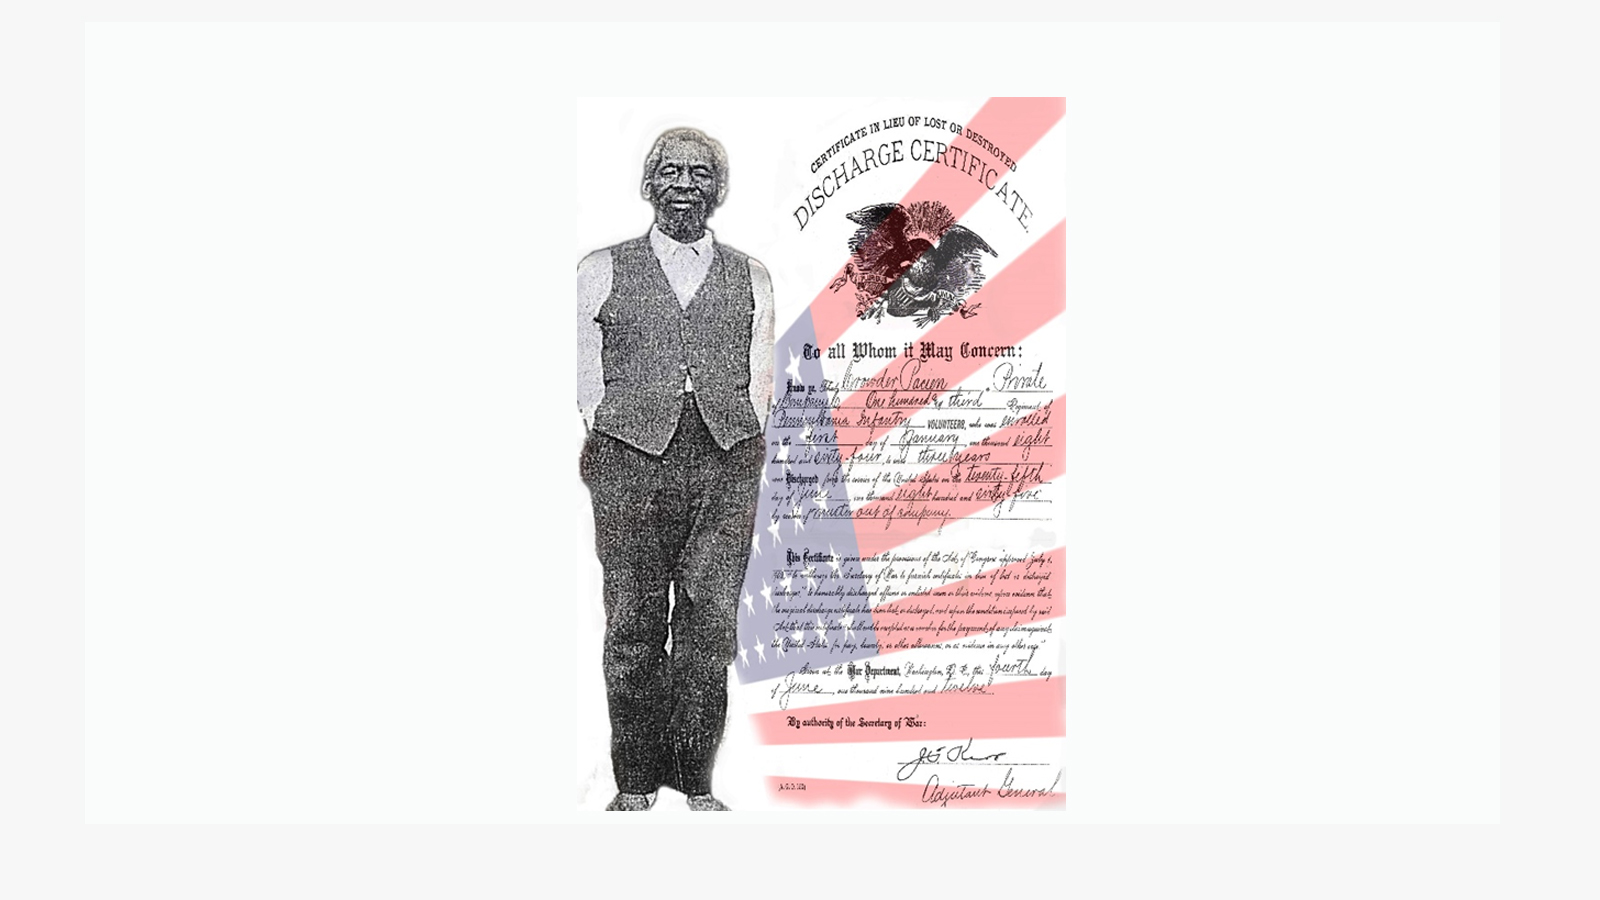 CERTIFICATE IN LIEU OF LOST OR DESTROYED
DISCHARGE CERTIFICATE.
To all Whom it May Concern:
Know ye, That Crowder Pacien, Private
of Company C, One hundred & third Regiment of
Pennsylvania Infantry VOLUNTEERS, who was enrolled
on the first day of January, one thousand eight
hundred and sixty-four, to serve three years
was Discharged from the service of the United States on the twenty-fifth
day of June, one thousand eight hundred and sixty-five
by reason of muster out of company.
This Certificate is given under the provisions of the Act of Congress approved July 1,
to authorize the Secretary of War to furnish certificates in lieu of lost or destroyed
discharges," to honorably discharged officers or enlisted men or their widows, upon evidence that
the original discharge certificate has been lost or destroyed, and upon the condition imposed by said
Act that this certificate shall not be accepted as a voucher for the payment of any claim against
the United States for pay, bounty, or other allowance, or as evidence in any other case."
Given at the War Department, Washington, D. C., this fourth day
of June, one thousand nine hundred and twelve
By authority of the Secretary of War:
Adjutant General